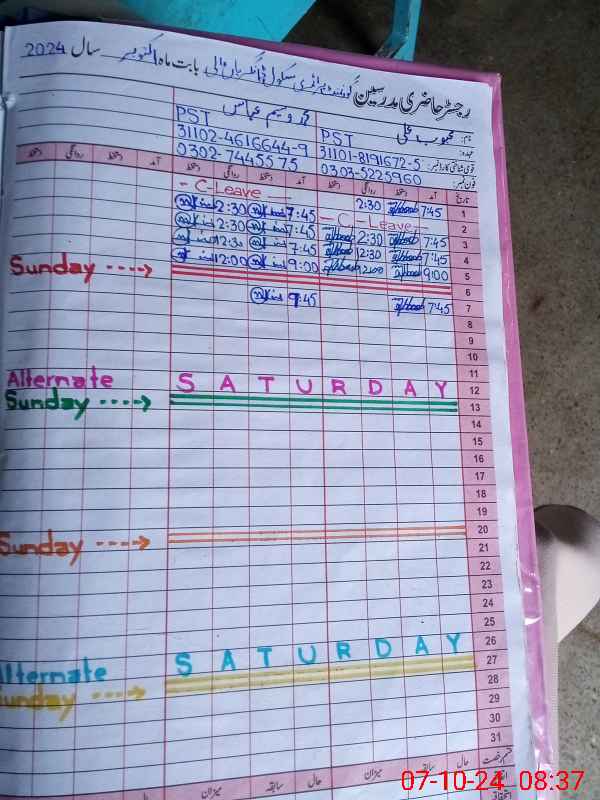 رجسٹر حاضری مدرسین گورنمنٹ پرائمری سکول بابت ماہ اکتوبر سال 2024
نام: محبوب علی محمد وسیم عباس
عہدہ: PST PST
قومی شناختی کارڈ نمبر: 31101-8191672-5 31102-4616644-9
فون نمبر: 0303-5225960 0302-7445575
تاریخ آمد دستخط روانگی دستخط آمد دستخط روانگی دستخط آمد دستخط روانگی دستخط
1 7:45 2:30 - C-Leave
2 - C-Leave 7:45 2:30
3 7:45 2:30 7:45 2:30
4 7:45 12:30 7:45 12:30
5 9:00 12:00 9:00 12:00
Sunday ----> 6
7 7:45 9:45
8
9
10
11
Alternate S A T U R D A Y 12
Sunday ----> 13
14
15
16
17
18
19
Sunday ---> 20
21
22
23
24
25
26
Alternate S A T U R D A Y 27
Sunday ---> 28
29
30
31
قسم رخصت حال سابقہ میزان حال سابقہ میزان
07-10-24 08:37